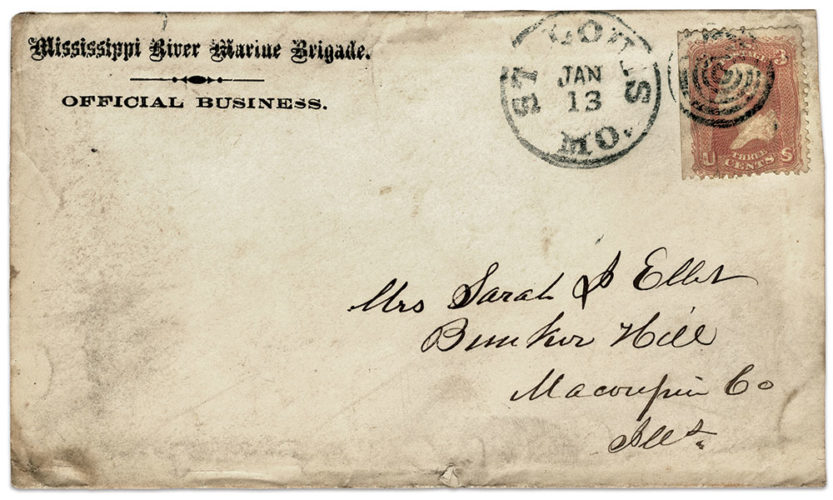 Mississippi River Marine Brigade.
OFFICIAL BUSINESS.
ST LOUIS MO.
JAN
13
3
U THREE CENTS S
Mrs Sarah J Ellet
Bunker Hill
Macoupin Co
Ills.